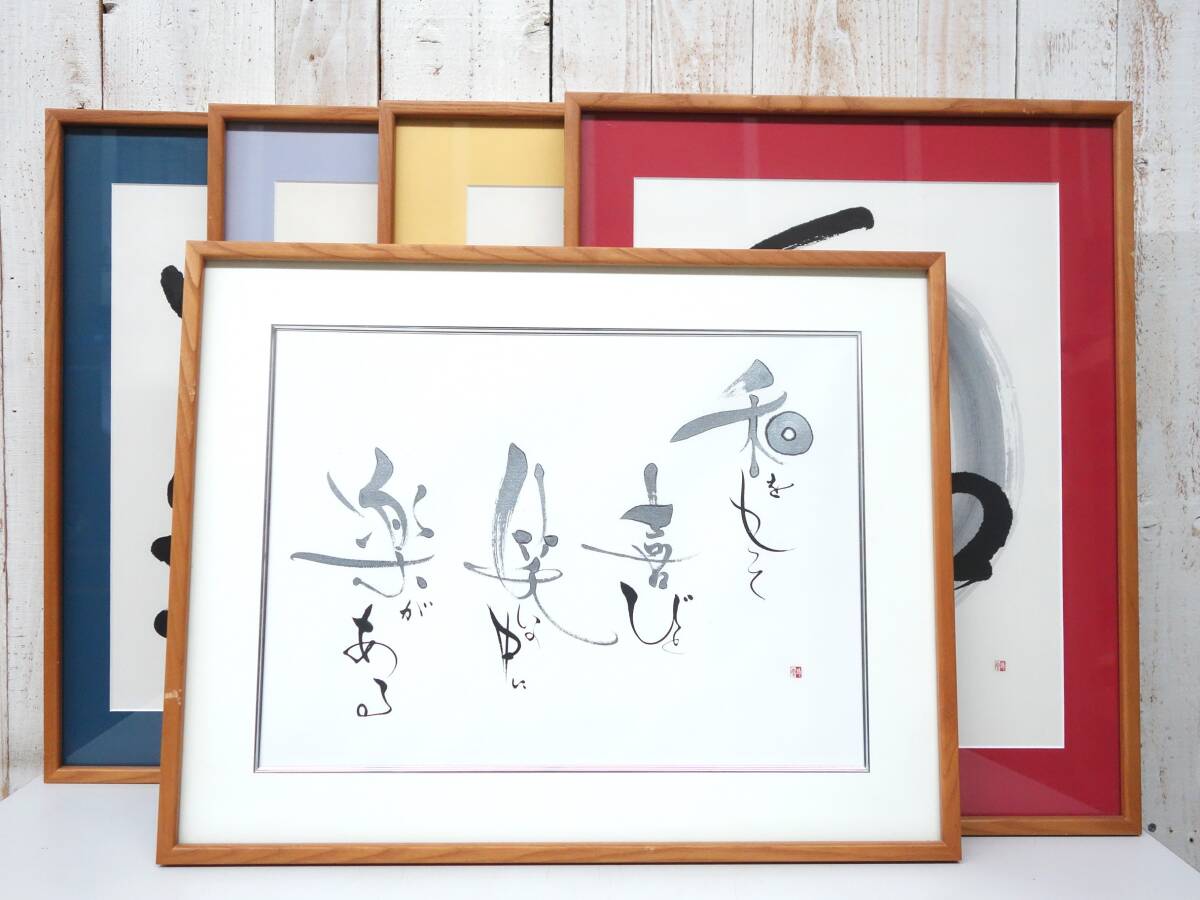 和をもって
喜びを
笑いの中に
楽がある